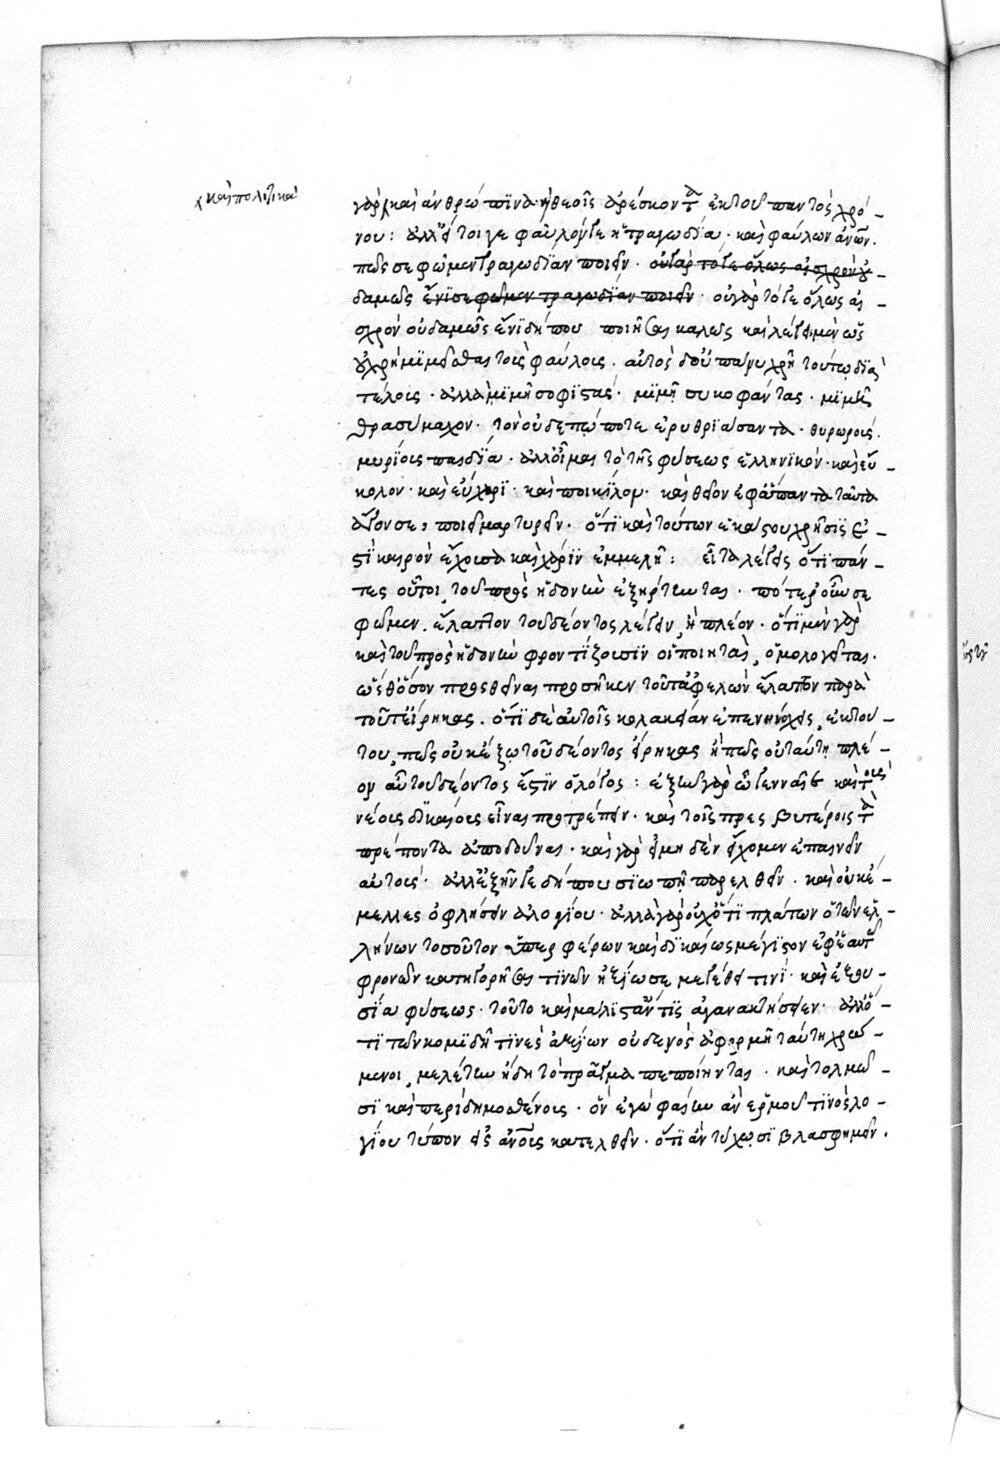 καὶ πολιτικὰ
γὰρ καὶ ἀνθρώπινα· ἢ θεοῖς ἀρέσκοντα ἐκ τοῦ παντὸς χρό-
νου: ἀλλ' ἔστι γε φαῦλόν τε ἡ τραγωδία· καὶ φαύλων ἀνων·
πῶς σε φῶμεν τραγωδίαν ποιεῖν· οὐ γὰρ τό τε ὅλως αἰσχρὸν οὐ-
δαμῶς ἔνι σε φῶμεν τραγωδίαν ποιεῖν· οὐ γὰρ τό τε ὅλως αἰ-
σχρὸν οὐδαμῶς ἔνι δήπου ποιῆσαι καλῶς καὶ λέγομεν ὡς
οὐ χρὴ μιμεῖσθαι τοὺς φαύλους. αὐτὸς δ' οὐ πάνυ χρῆ τούτω διὰ
τέλους· ἀλλὰ μιμῆ σοφιστάς· μιμῆ συκοφάντας· μιμῆ
θρασύμαχον· τὸν οὐδεπώποτε ἐρυθριάσαντα· θυρωρούς.
μυρίους παιδία· ἀλλ' οἶμαι τὸ τῆς φύσεως ἑλληνικὸν· καὶ εὔ-
κολον· καὶ εὔχαρι· καὶ ποικίλον· καὶ θεῖον ἐφ' ἅπαντα ταῦτα
ἄγον σε, ποιεῖ μαρτυρεῖν· ὅτι καὶ τούτων ἑκάστου χρῆσις ἐ-
στὶ καιρὸν ἔχουσα καὶ χάριν ἐμμελῆ: εἶτα λέγεις ὅτι πάν-
τες οὗτοι, τοῦ πρὸς ἡδονὴν ἐξήρτηνται· πότερ' οὖν σε
φῶμεν. ἔλαττον τοῦ δέοντος λέγειν, ἢ πλέον· ὅτι μὲν γὰρ
καὶ τοῦ πρὸς ἡδονὴν φροντίζουσιν οἱ ποιηταὶ, ὁμολογεῖται.
ὥσθ' ὅσον προσθεῖναι προσῆκεν τοῦτ' ἀφελὼν ἔλαττον παρὰ
τοῦτ' εἴρηκας. ὅτι δὲ αὐτοῖς κολακείαν ἐπενήνοχας, ἐκ τού-
του, πῶς οὐκ ἔξω τοῦ δέοντος εἴρηκας ἢ πῶς οὐ ταύτη πλέ-
ον αὖ τοῦ δέοντος ἐστὶν ὁ λόγος: ἐξῆν γὰρ ὦ γενναῖε καὶ τοὺς
νέους δικαίους εἶναι προτρέπειν· καὶ τοῖς πρεσβυτέροις τὰ
πρέποντα ἀποδοῦναι· καὶ γὰρ εἰ μηδὲν εἴχομεν ἐπαινεῖν
αὐτούς· ἀλλ' ἐξῆν γε δήπου σιωπῆ παρελθεῖν. καὶ οὐκ ἔ-
μελλες ὀφλήσειν ἀλογίου· ἀλλὰ γὰρ οὐχ ὅτι πλάτων ὁ τῶν ἑλ-
λήνων τοσοῦτον ὑπερφέρων καὶ δικαίως μέγιστον ἐφ' ἑαυτῶ
φρονῶν κατηγορῆσαι τινῶν ἠξίωσε μεγέθει τινὶ· καὶ ἐξου-
σία φύσεως· τοῦτο καὶ μάλιστ' ἄν τις ἀγανακτήσειεν. ἀλλ' ὅ-
τι τῶν κομιδῆ τινὲς ἀξίων οὐδενὸς ἀφορμῆ ταύτη χρώ-
μενοι, μελέτην ἤδη τὸ πρᾶγμα πεποίηνται. καὶ τολμῶ-
σι καὶ περὶ δημοσθένους. ὃν ἐγὼ φαίην ἂν ἑρμοῦ τινὸς λο-
γίου τύπον εἰς ἀνους κατελθεῖν. ὅτι ἂν τύχωσι βλασφημεῖν.